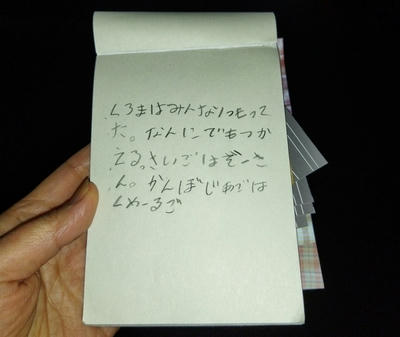 くるまはみんなにつもって
た。なんにでもつか
える。さいごはぞーさ
ん。かんぼじあごは
くめーるご